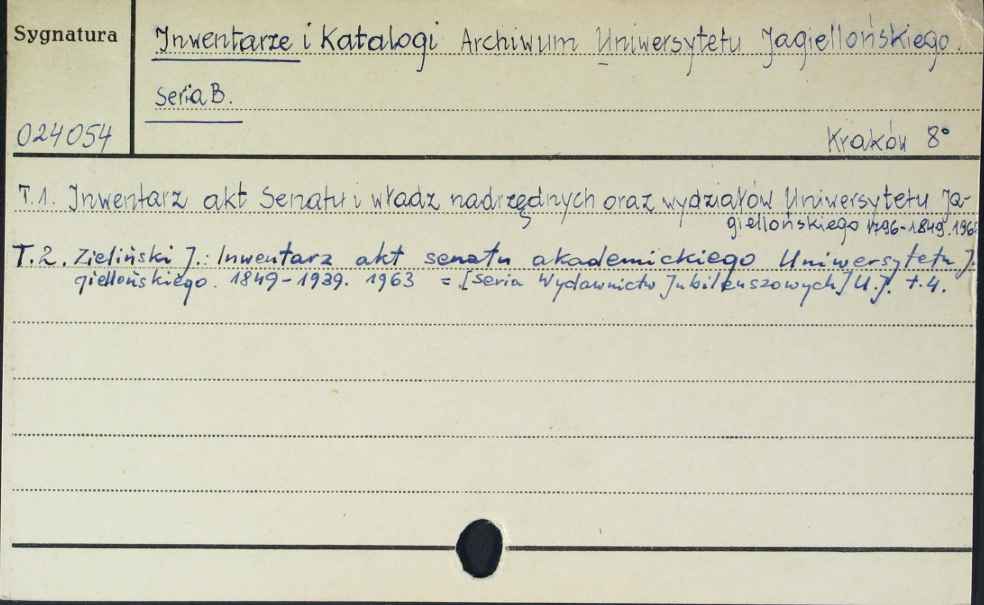 Sygnatura
Inwentarze i Katalogi Archiwum Uniwersytetu Jagiellońskiego.
Seria B.
024054
Kraków 8°
T.1. Inwentarz akt Senatu i władz nadrzędnych oraz wydziałów Uniwersytetu Ja-
giellońskiego 1796-1849. 196
T.2. Zieliński J.: Inwentarz akt senatu akademickiego Uniwersytetu J.
giellońskiego. 1849-1939. 1963 = [Seria Wydawnictw Jubileuszowych] U.J. t.4.